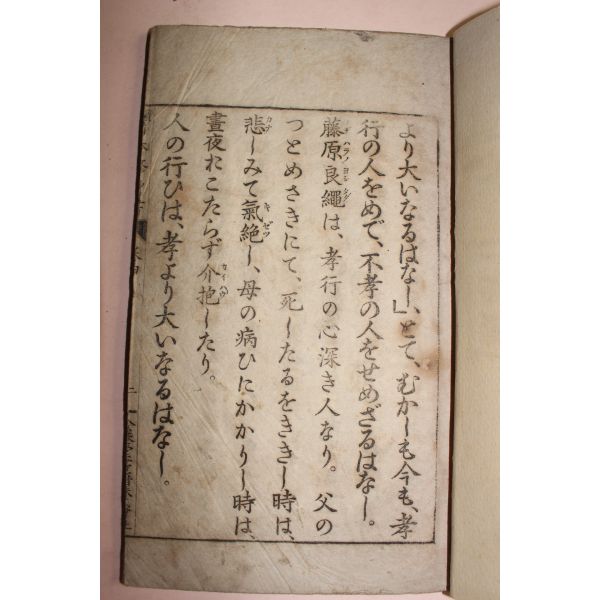 より大いなるはなし」とて、むかしも今も、孝
行の人をめで、不孝の人をせめざるはなし。
藤原良繩は、孝行の心深き人なり。父の
つとめさきにて、死したるをききし時は、
悲しみて氣絶し、母の病ひにかかりし時は、
晝夜おこたらず介抱したり。
人の行ひは、孝より大いなるはなし。